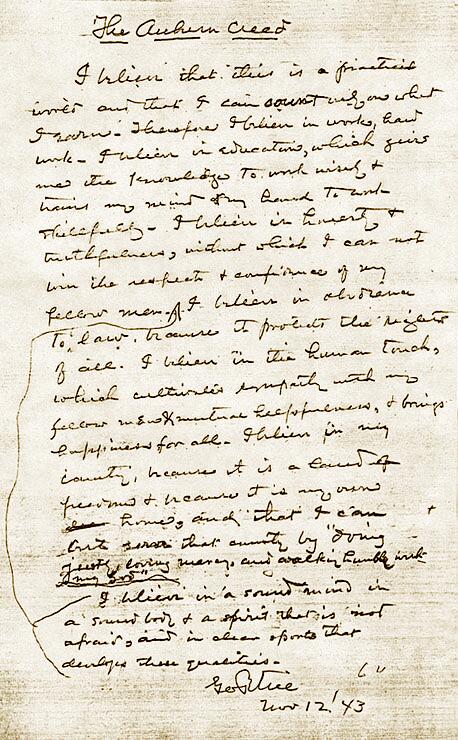 The Auburn Creed
I believe that this is a practical
world and that I can count only on what
I earn. Therefore I believe in work, hard
work. I believe in education, which gives
me the knowledge to work wisely &
trains my mind & my hand to work
skillfully. I believe in honesty &
truthfulness, without which I can not
win the respect & confidence of my
fellow men. I believe in obedience
to law, because it protects the rights
of all. I believe in the human touch,
which cultivates sympathy with my
fellow men & mutual helpfulness, & brings
happiness for all. I believe in my
country, because it is a land of
freedom & because it is my own
home, and that I can
best serve that country by "doing
justly, loving mercy, and walking humbly with
my God".
I believe in a sound mind in
a sound body & a spirit that is not
afraid, and in clean sports that
develops these qualities.
Geo Petrie
Nov 12. '43